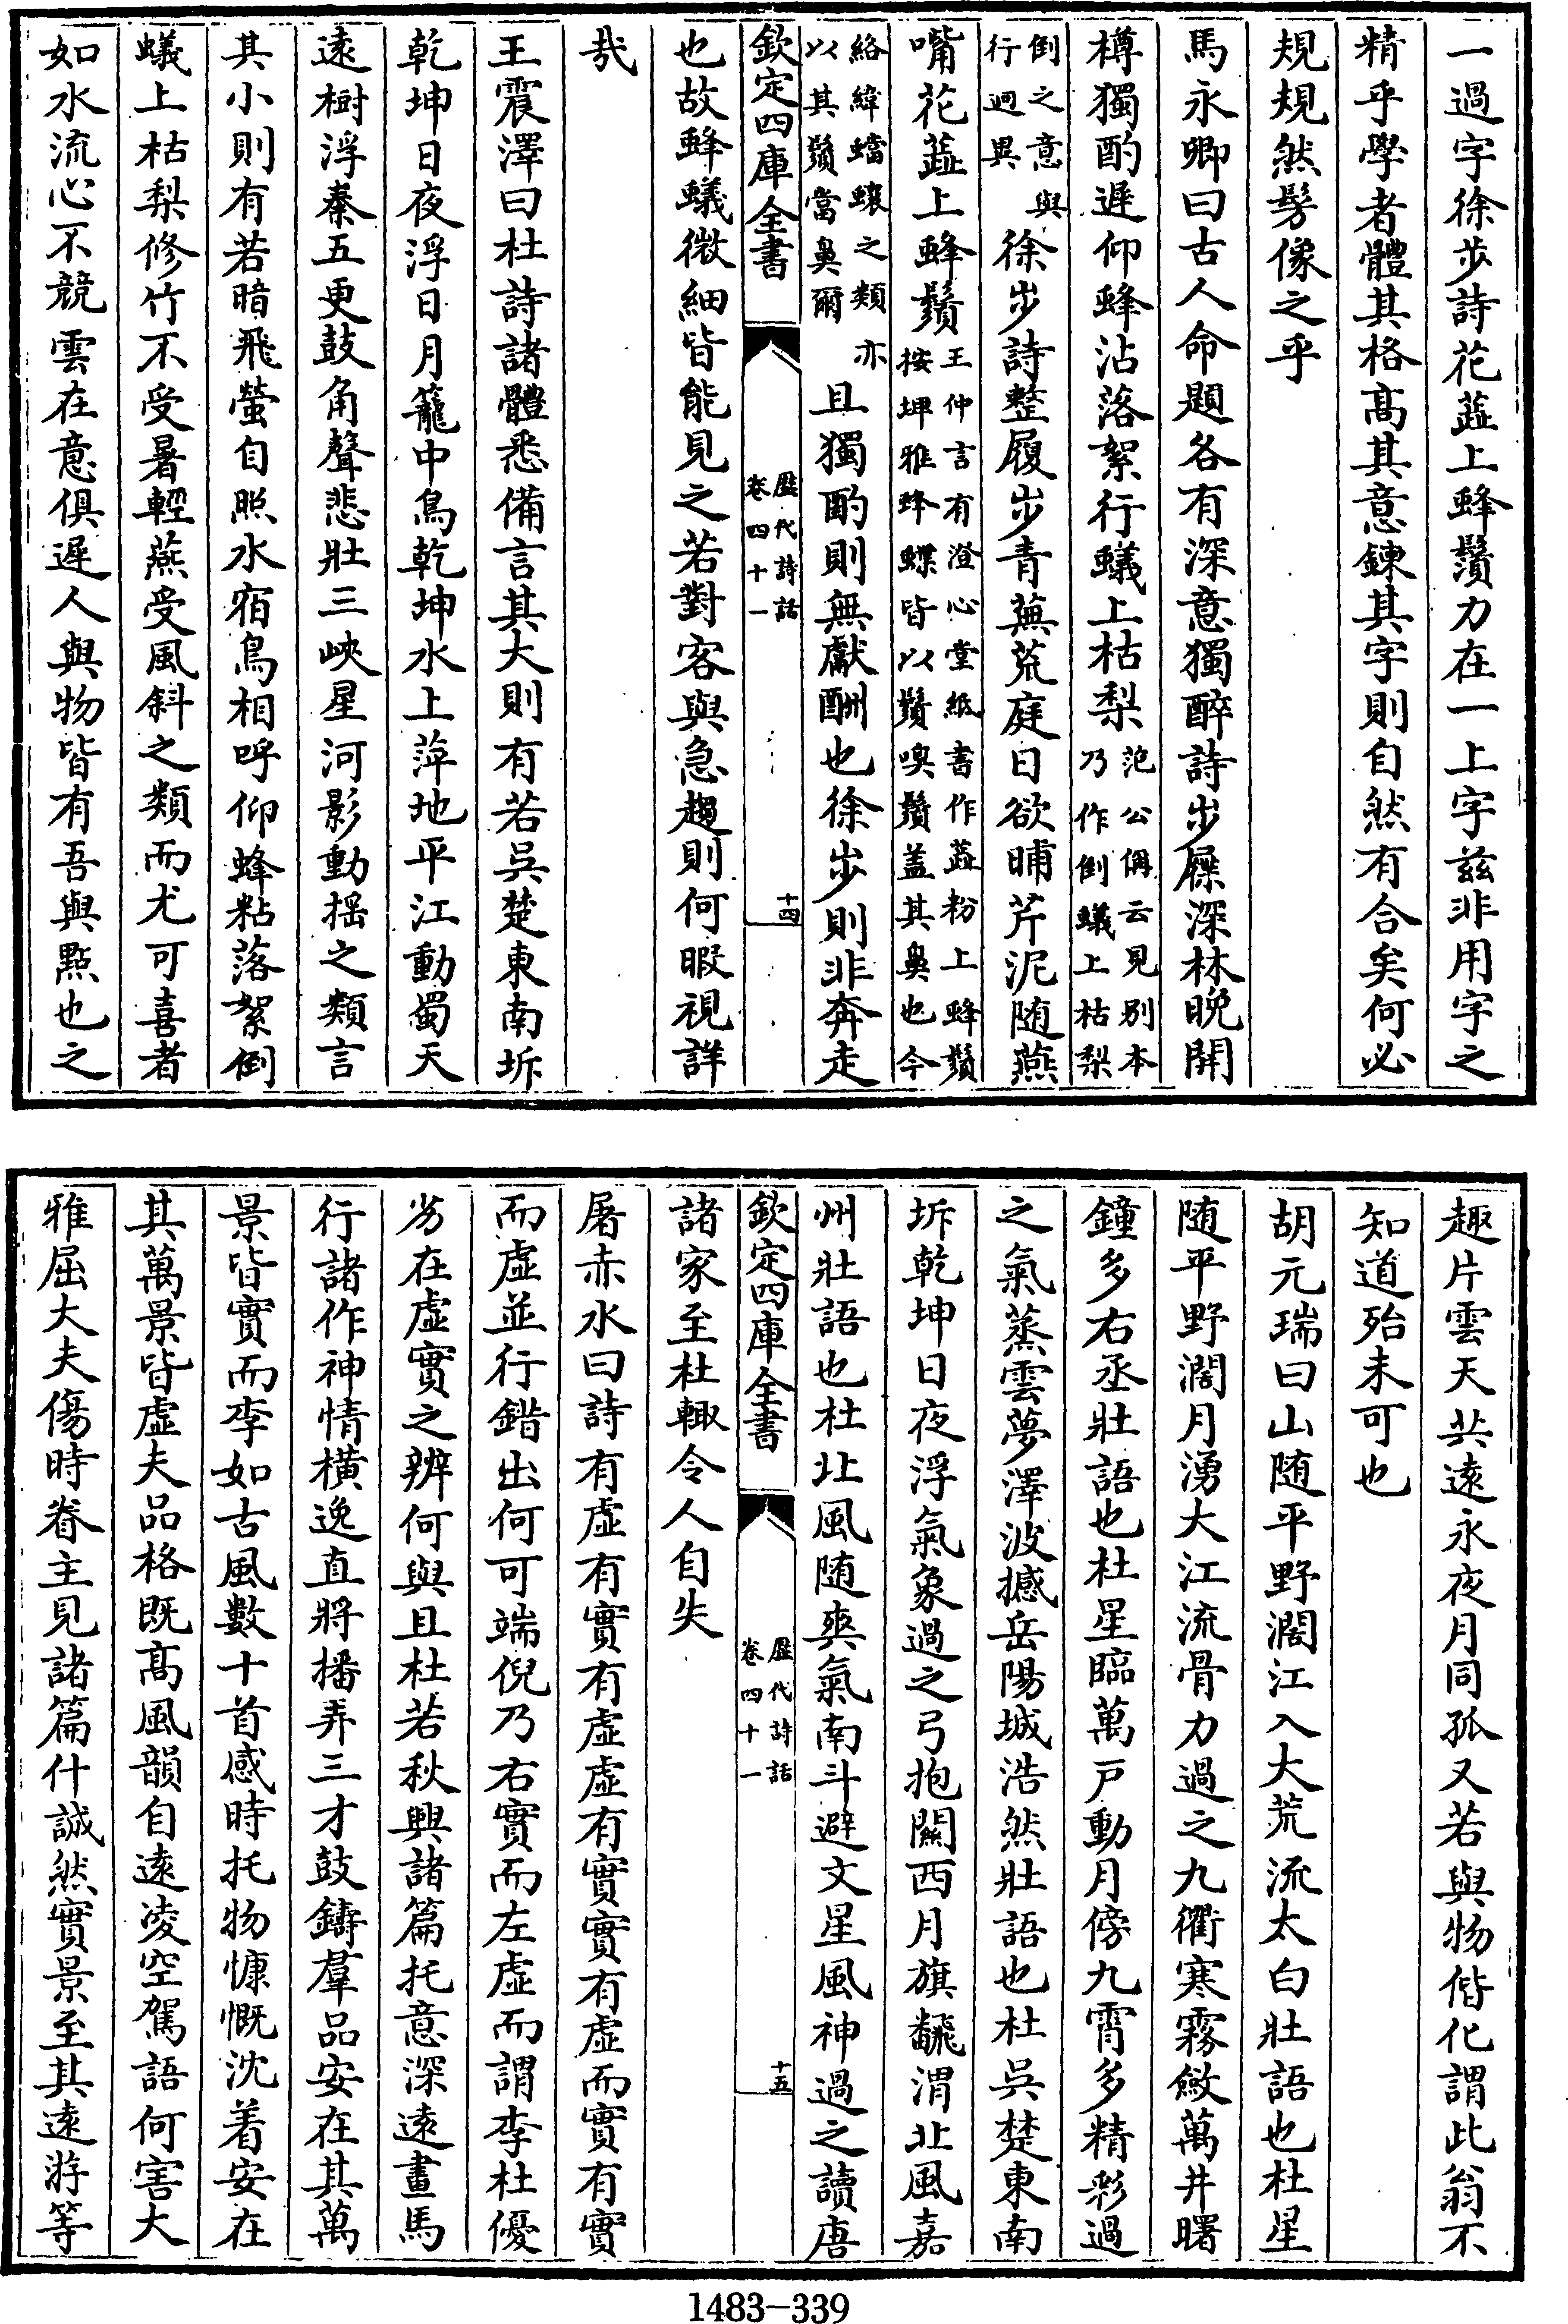 一過字徐步詩花蘂上蜂鬚力在一上字兹非用字之
精乎學者體其格髙其意鍊其字則自然有合矣何必
規規然髣像之乎
馬永卿曰古人命題各有深意獨醉詩步屧深林晩開
樽獨酌遲仰蜂沾落絮行蟻上枯梨范公偁云見别本乃作倒蟻上枯梨
倒之意與行逈異徐步詩整履步青蕪荒庭日欲晡芹泥随燕
嘴花蘂上蜂鬚王仲言有澄心堂紙書作蘂粉上蜂鬚按埤雅蜂蝶皆以鬚嗅鬚盖其鼻也今
絡緯蟷蠰之類亦以其鬚當鼻爾且獨酌則無獻酬也徐步則非奔走
欽定四庫全書
歴代詩話
卷四十一
十四
也故蜂蟻微細皆能見之若對客與急趨則何暇視詳
㢤
王震澤曰杜詩諸體悉備言其大則有若吳楚東南坼
乾坤日夜浮日月籠中鳥乾坤水上萍地平江動蜀天
遠樹浮秦五更鼓角聲悲壯三峽星河影動揺之類言
其小則有若暗飛螢自照水宿鳥相呼仰蜂粘落絮倒
蟻上枯梨修竹不受暑輕燕受風斜之類而尤可喜者
如水流心不競雲在意俱遲人與物皆有吾與㸃也之
趣片雲天共遠永夜月同孤又若與物偕化謂此翁不
知道殆未可也
胡元瑞曰山随平野濶江入大荒流太白壯語也杜星
随平野濶月湧大江流骨力過之九衢寒霧斂萬井曙
鐘多右丞壯語也杜星臨萬戸動月傍九霄多精彩過
之氣蒸雲夢澤波撼岳陽城浩然壯語也杜吳楚東南
坼乾坤日夜浮氣象過之弓抱關西月旗飜渭北風嘉
州壯語也杜北風随爽氣南斗避文星風神過之讀唐
欽定四庫全書
歴代詩話
卷四十一
十五
諸家至杜輙令人自失
屠赤水曰詩有虚有實有虚虚有實實有虚而實有實
而虚並行錯出何可端倪乃右實而左虚而謂李杜優
劣在虚實之辨何與且杜若秋興諸篇托意深遠畫馬
行諸作神情横逸直將播弄三才鼓鑄羣品安在其萬
景皆實而李如古風數十首感時托物慷慨沈着安在
其萬景皆虚夫品格既髙風韻自遠凌空駕語何害大
雅屈大夫傷時眷主見諸篇什誠然實景至其遠游等
1483-339